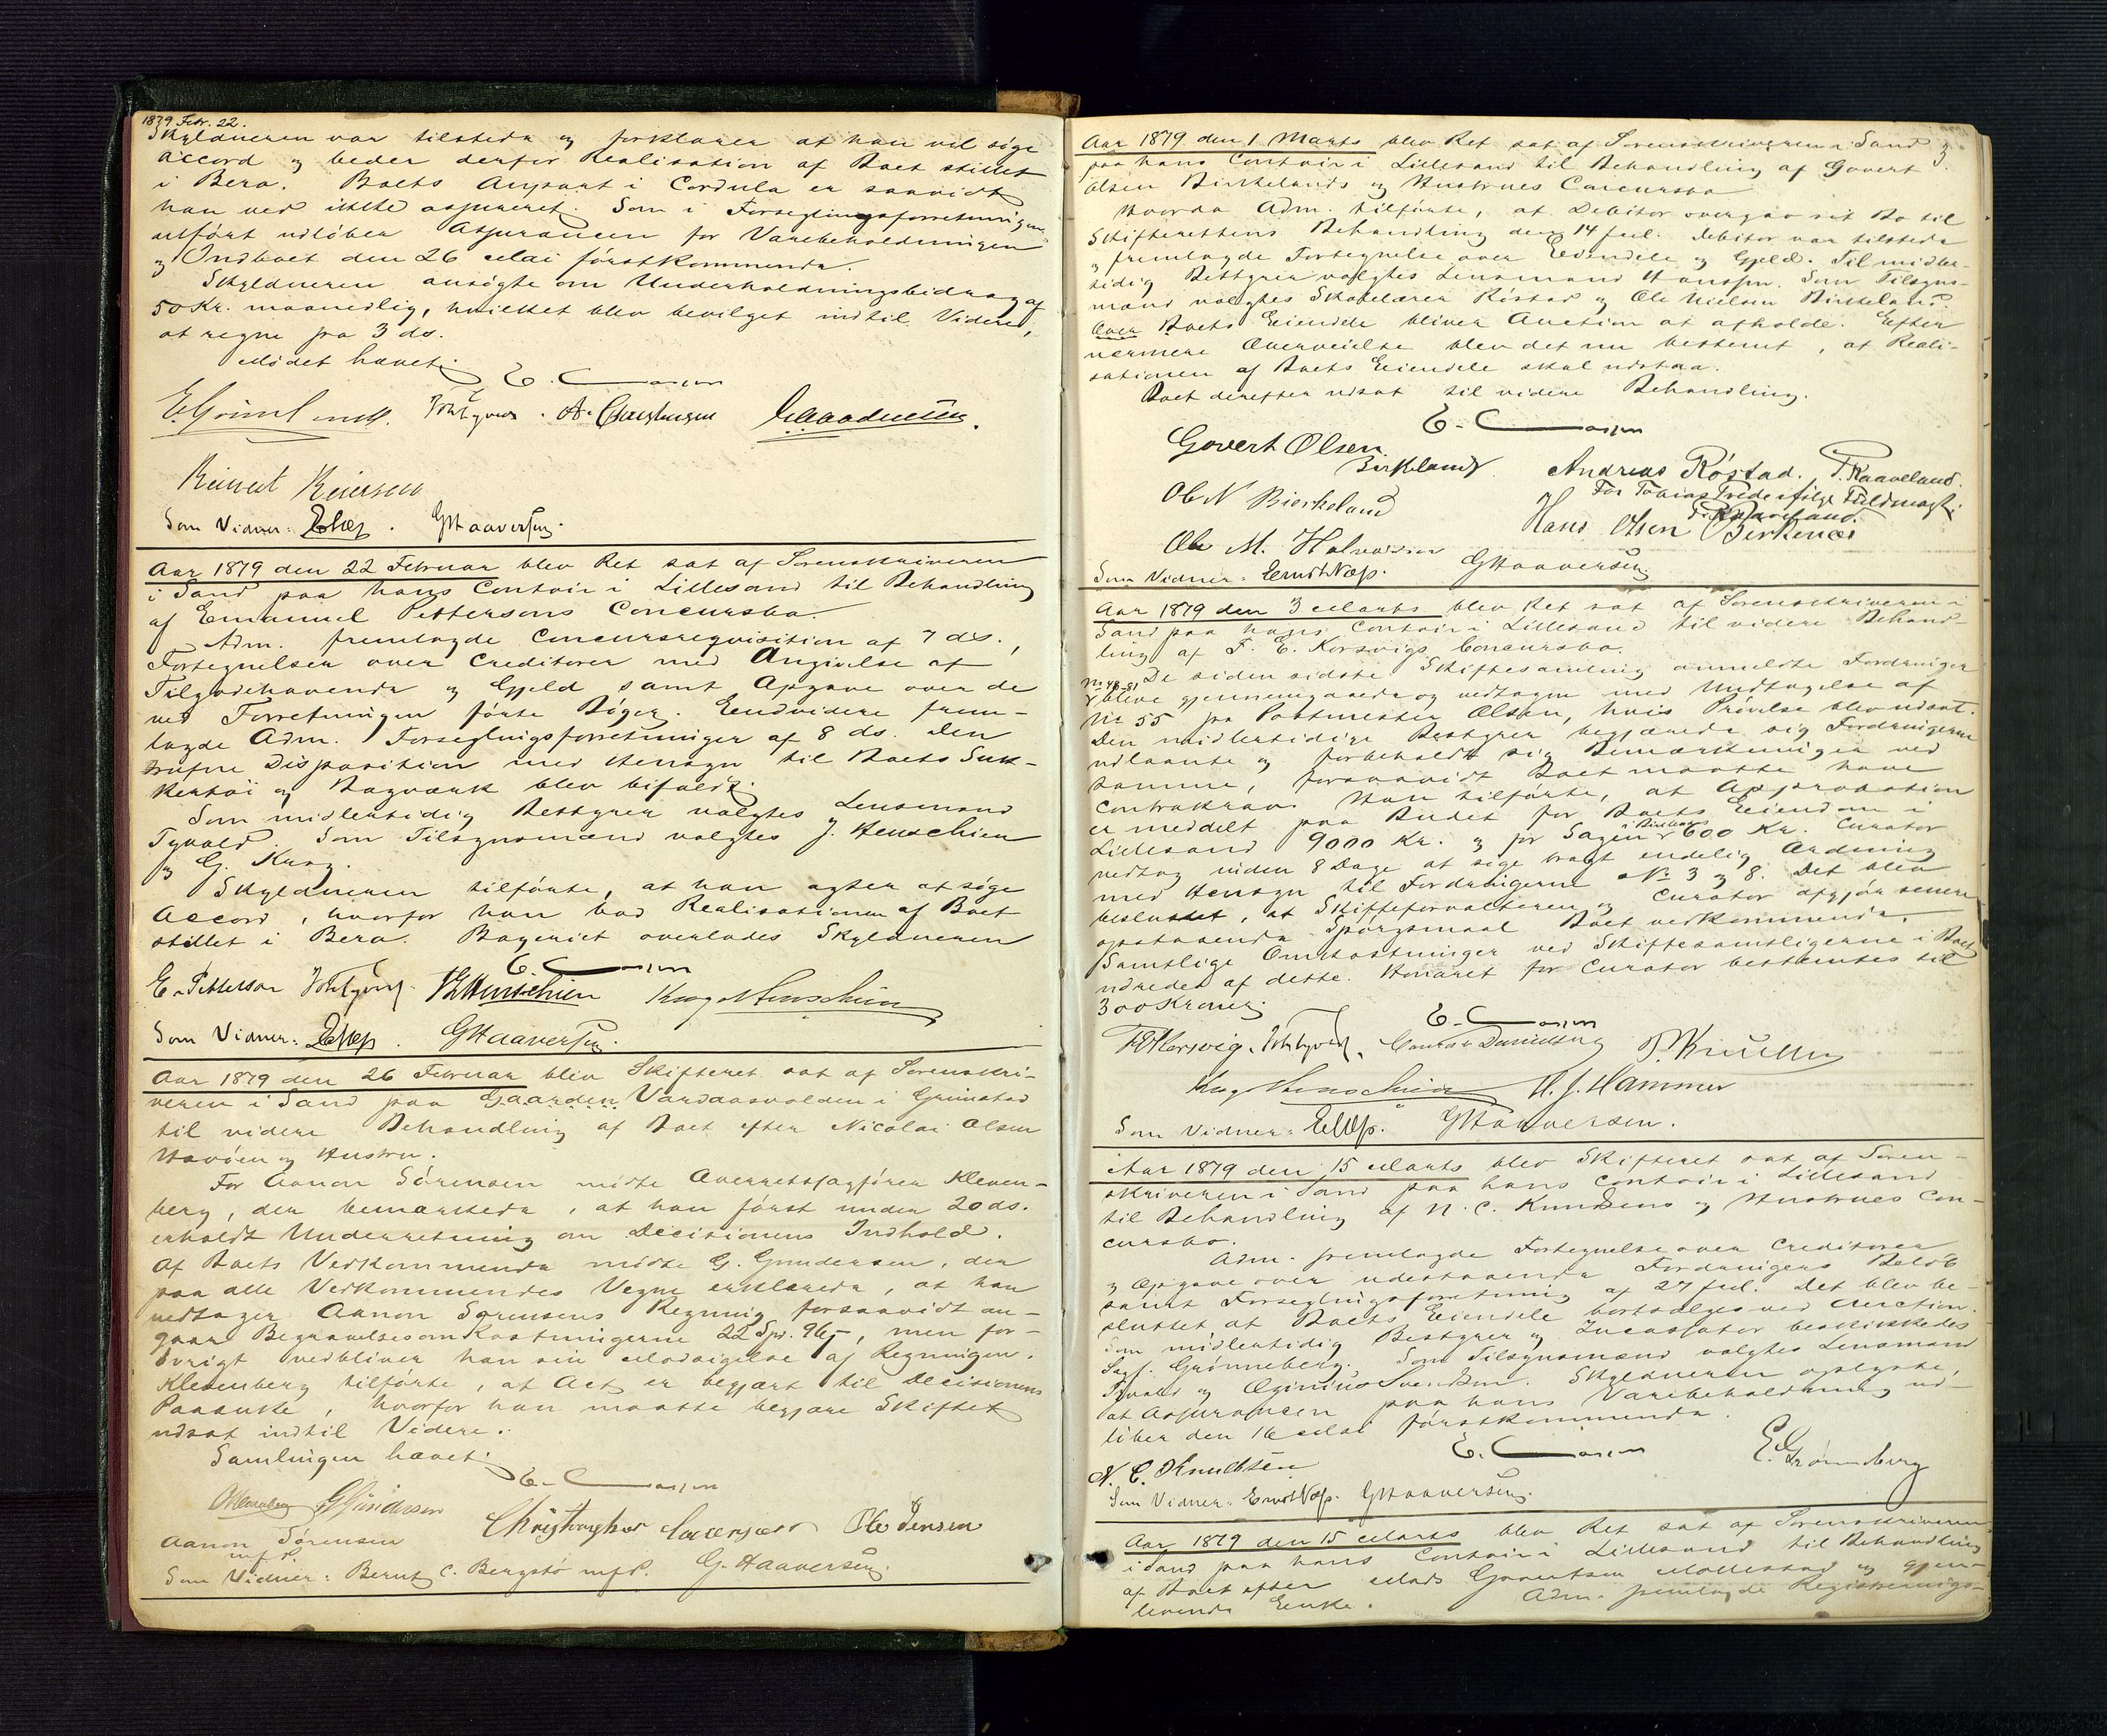 1879 Febr. 22.
Skyldneren var tilstede og forklarer at han vil søge
Accord og beder derfor Realisation af Boet stillet
i Bero. Boets Anpart i Cordula er saavidt
han ved ikke assureret. Som i Forseglingsforretningen
anført udløber Assurancen for Varebeholdningen
og Indboet den 26 Mai førstkommende.
Skyldneren ansøgte om Underholdningsbidrag af
50 Kr. maanedlig, hvilket blev bevilget indtil Videre,
at regne fra 3 ds.
Mødet hævet.
E. C
A. Christensen
Reinert Reiersen
Som Vidner: G Haaversen.
Aar 1879 den 22 Februar blev Ret sat af Sorenskriveren
i Sand paa hans Contoir i Lillesand til Behandling
af Emanuel Pettersons Concursbo.
Adm. fremlagde Concursrequisition af 7 ds.,
Fortegnelsen over Creditorer med Angivelse af
Tilgodehavende og Gjeld samt Opgave over de
ved Forretningen førte Bøger. Endvidere frem-
lagde Adm. Forseglingsforretninger af 8 ds. Den
trufne Disposition med Hensyn til Boets Suk-
kertøi og Bagværk blev bifaldt.
Som midlertidig Bestyrer valgtes Lensmand
Tyvold. Som Tilsynsmænd valgtes J. Henschien
og G. Krag.
Skyldneren tilførte, at han agter at søge
Accord, hvorfor han bad Realisationen af Boet
stillet i Bero. Bageriet overlades Skyldneren
E. C
E. Petterson Henschien Krag Henschien
Som Vidner: G Haaversen.
Aar 1879 den 26 Februar blev Skifteret sat af Sorenskri-
veren i Sand paa Gaarden Vardaasvolden i Grimstad
til videre Behandling af Boet efter Nicolai Olsen
Havöen og Hustru.
For Aanon Sörensen mødte Overretssagfører Kleven-
berg, der bemærkede, at han først under 20 ds.
erholdt Underretning om Decisionens Indhold.
Af Boets Vedkommende mødte G. Gundersen, der
paa alle Vedkommendes Vegne erklærede, at han
vedtager Aanon Sørensens Regning forsaavidt an-
gaar Begravelsesomkostningerne 22 Spd. 96 s, men for-
øvrigt vedbliver han sin Modsigelse af Regningen.
Klevenberg tilførte, at Act er begjært til Decisionens
Paaanke, hvorfor han maatte begjære Skiftet
udsat indtil Videre.
Samlingen hævet.
E. C
G Gundersen Ole Jensen
Aanon Sørensen
m. f. P.
Som Vidner: Bernt C. Bergstø m. f. P. G. Haaversen.
Aar 1879 den 1 Marts blev Ret sat af Sorenskriveren i Sand
paa hans Contoir i Lillesand til Behandling af Govert
Olsen Birkelands og Hustrues Concursbo
Hvorda Adm. tilførte, at Debitor overgav sit Bo til
Skifterettens Behandling den 14 f. M. Debitor var tilstede
og fremlagde Fortegnelse over Eiendele og Gjeld. Til midler-
tidig Bestyrer valgtes Lensmand Hansson. Som Tilsyns-
mænd valgtes Skolelærer Røstad og Ole Nielsen Birkeland.
Over Boets Eiendele bliver Auction at afholde. Efter
nærmere Overveielse blev det nu bestemt, at Reali-
sationen af Boets Eiendele skal udstaa.
Boet derefter udsat til videre Behandling.
E. C
Govert Olsen
Birkeland Andreas Røstad. T. Kaaveland.
Ole N Bierkeland For Tobias Fuldmagt:
Hans Olsen Birkenes
Ole M. Halvorsen
Som Vidner: Ernst Næss. G Haaversen
Aar 1879 den 3 Marts blev Ret sat af Sorenskriveren i
Sand paa hans Contoir i Lillesand til videre Behand-
ling af F. E. Korsvigs Concursbo.
De siden sidste Skiftesamling anmeldte Fordringer
No 48-81
bleve gjennemgaaede og vedtagen med Undtagelse af
No 55 fra Postmester Olsen, hvis Prøvelse blev udsat.
Den midlertidige Bestyrer begjærede sig Fordringerne
udlaante og forbeholdt sig Bemærkninger ved
samme, forsaavidt Boet maatte have
Contrakrav. Han tilførte, at Approbation
er meddelt paa Budet for Boets Eiendom i
Lillesand 9000 Kr. og for Sagen i Birkenes 600 Kr. Curator
vedtog inden 8 Dage at sige bragt endelig Ordning
med Hensyn til Fordringerne No 3 og 8. Det blev
besluttet, at Skifteforvalteren og Curator afgjør senere
opstaaende Spørgsmaal Boet vedkommende.
Samtlige Omkostninger ved Skiftesamlingerne i Boet
udredes af dette. Honoret for Curator bestemtes til
300 Kroner.
E. C
F E Korsvig. Danielsen
Krag Henschien H. J. Hammer
Som Vidner: G Haaversen.
Aar 1879 den 15 Marts blev Skifteret sat af Soren-
skriveren i Sand paa hans Contoir i Lillesand
til Behandling af N. C. Knudsens og Hustrues Con-
cursbo.
Adm. fremlagde Fortegnelse over Creditorer
og Opgave over udestaaende Fordringers Beløb
samt Forseglingsforretning af 27 f. M. Det blev be-
sluttet at Boets Eiendele bortsælges ved Auction.
Som midlertidig Bestyrer og Incassator beskikkedes
Sagf. Grønneberg. Som Tilsynsmænd valgtes Lensmand
Tyvold og Æginius Svendsen. Skyldneren oplyste,
at Assurancen paa hans Varebeholdning ud-
løber den 16 Mai førstkommende.
E. C
N. C. Knudtsen E. Grønneberg
Som Vidner: Ernst Næss. G Haaversen.
Aar 1879 den 15 Marts blev Ret sat af Sorenskriveren
i Sand paa hans Contoir i Lillesand til Behandling
af Boet efter Mads Govertsen Mollestad og gjen-
levende Enke. Adm. fremlagde Registrerings-